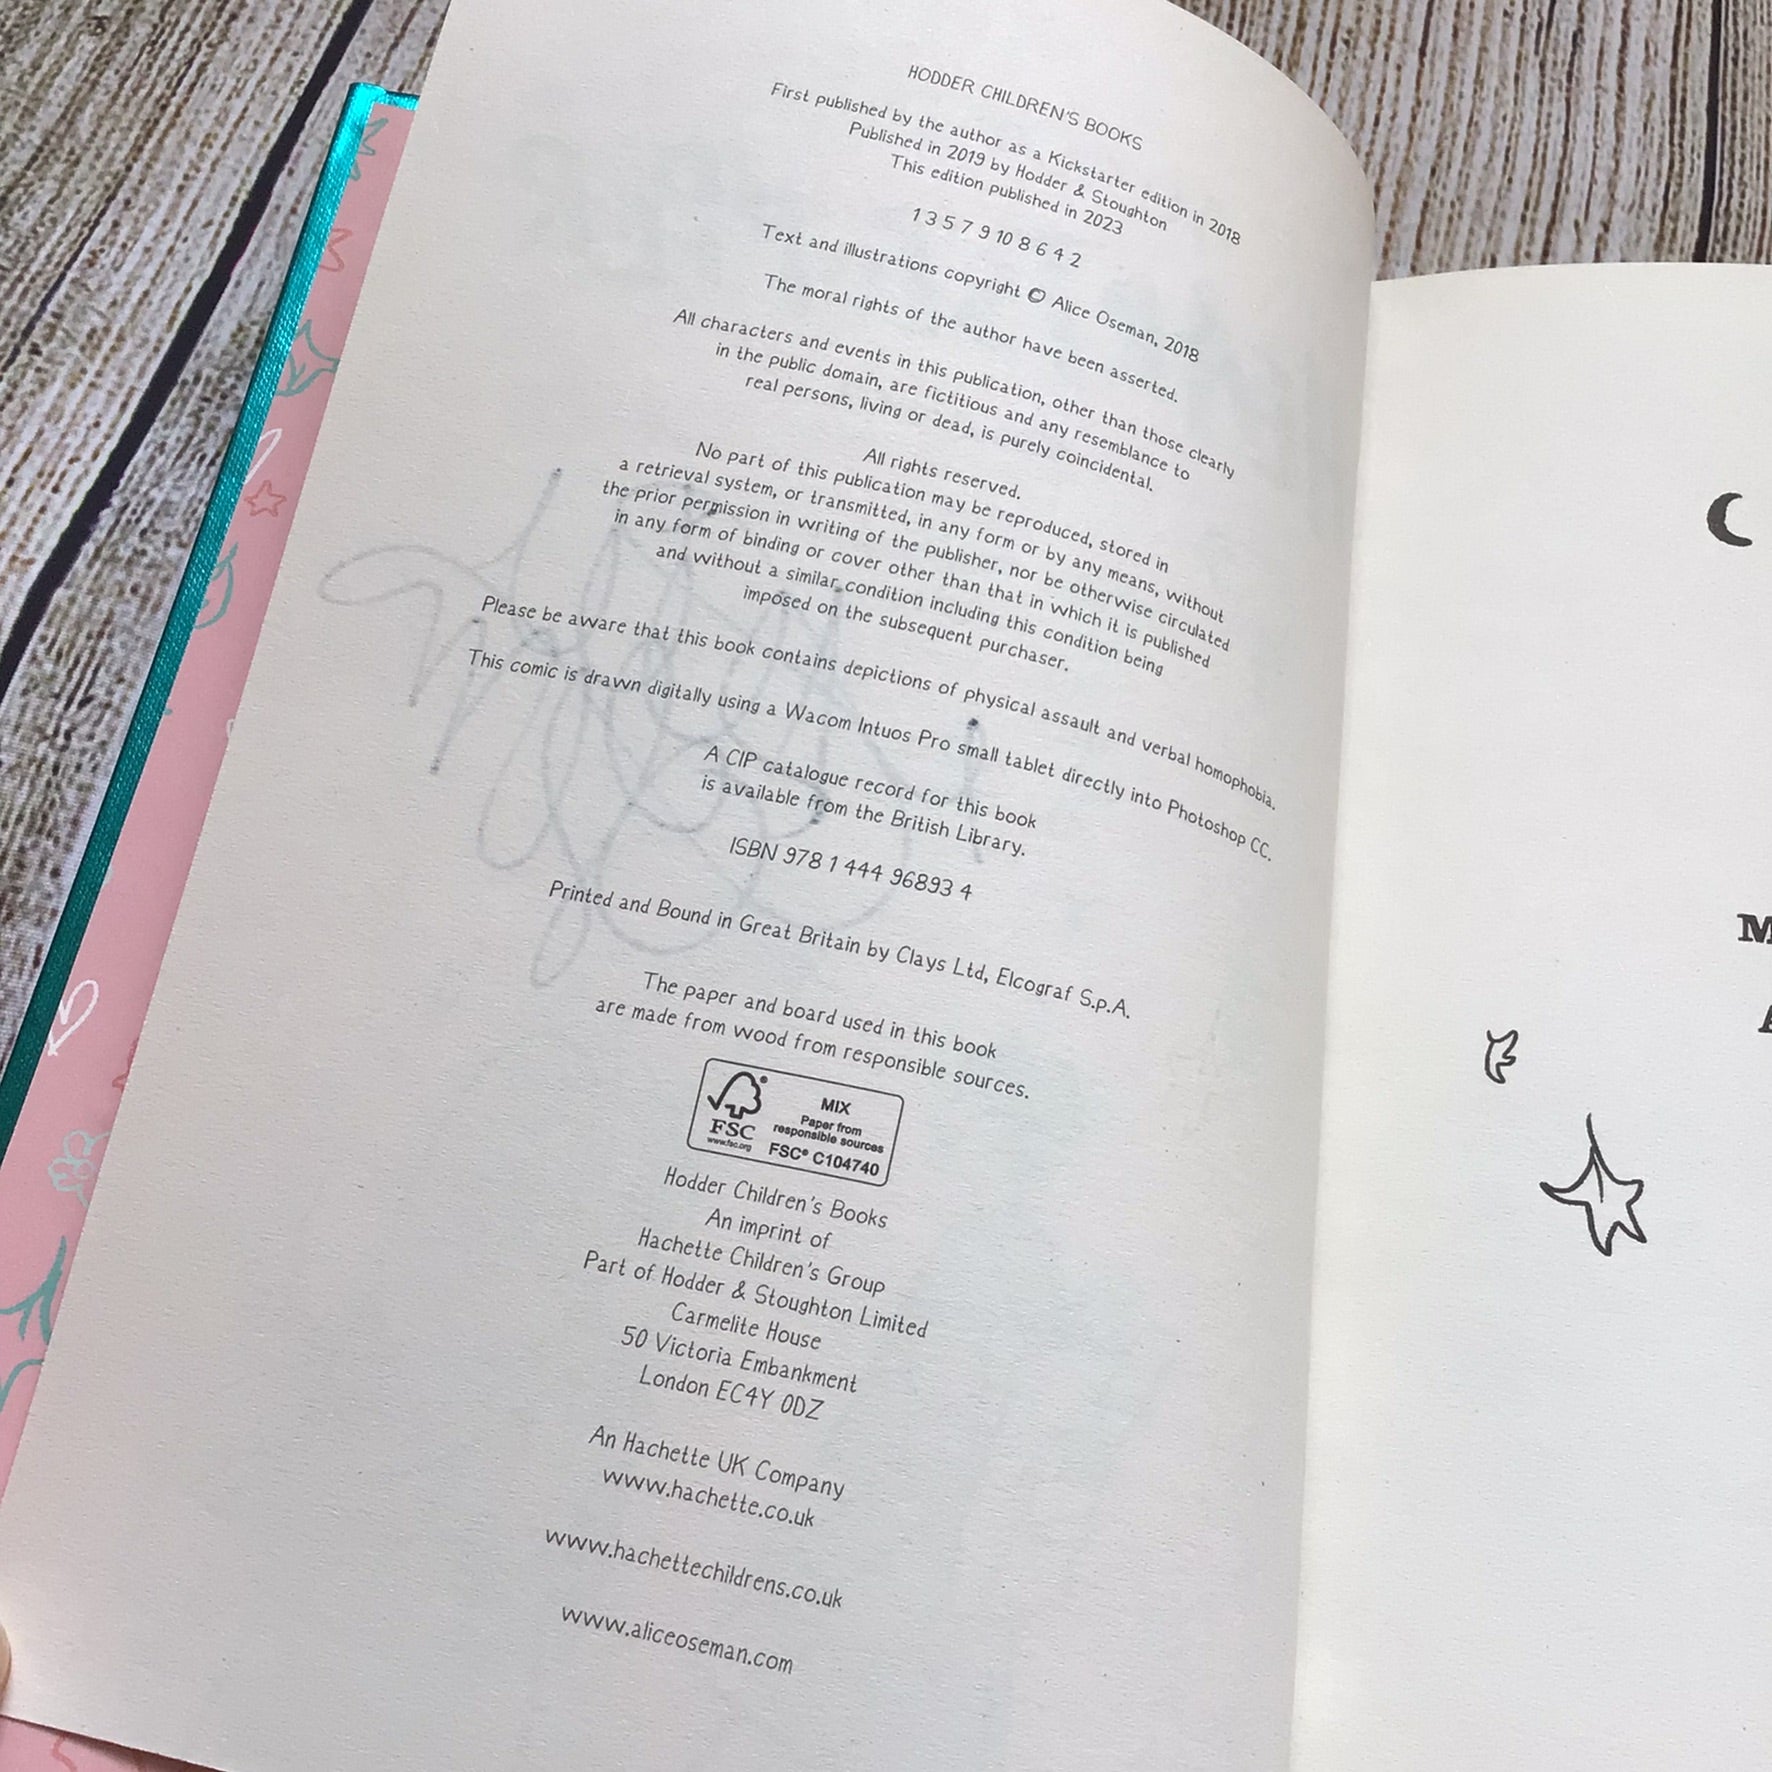 HODDER CHILDREN'S BOOKS
First published by the author as a Kickstarter edition in 2018
Published in 2019 by Hodder & Stoughton
This edition published in 2023
1 3 5 7 9 10 8 6 4 2
Text and illustrations copyright © Alice Oseman, 2018
The moral rights of the author have been asserted.
All characters and events in this publication, other than those clearly
in the public domain, are fictitious and any resemblance to
real persons, living or dead, is purely coincidental.
All rights reserved.
No part of this publication may be reproduced, stored in
a retrieval system, or transmitted, in any form or by any means, without
the prior permission in writing of the publisher, nor be otherwise circulated
in any form of binding or cover other than that in which it is published
and without a similar condition including this condition being
imposed on the subsequent purchaser.
Please be aware that this book contains depictions of physical assault and verbal homophobia.
This comic is drawn digitally using a Wacom Intuos Pro small tablet directly into Photoshop CC.
A CIP catalogue record for this book
is available from the British Library.
ISBN 978 1 444 96893 4
Printed and Bound in Great Britain by Clays Ltd, Elcograf S.p.A.
The paper and board used in this book
are made from wood from responsible sources.
FSC
www.fsc.org
MIX
Paper from
responsible sources
FSC® C104740
Hodder Children's Books
An imprint of
Hachette Children's Group
Part of Hodder & Stoughton Limited
Carmelite House
50 Victoria Embankment
London EC4Y 0DZ
An Hachette UK Company
www.hachette.co.uk
www.hachettechildrens.co.uk
www.aliceoseman.com
M